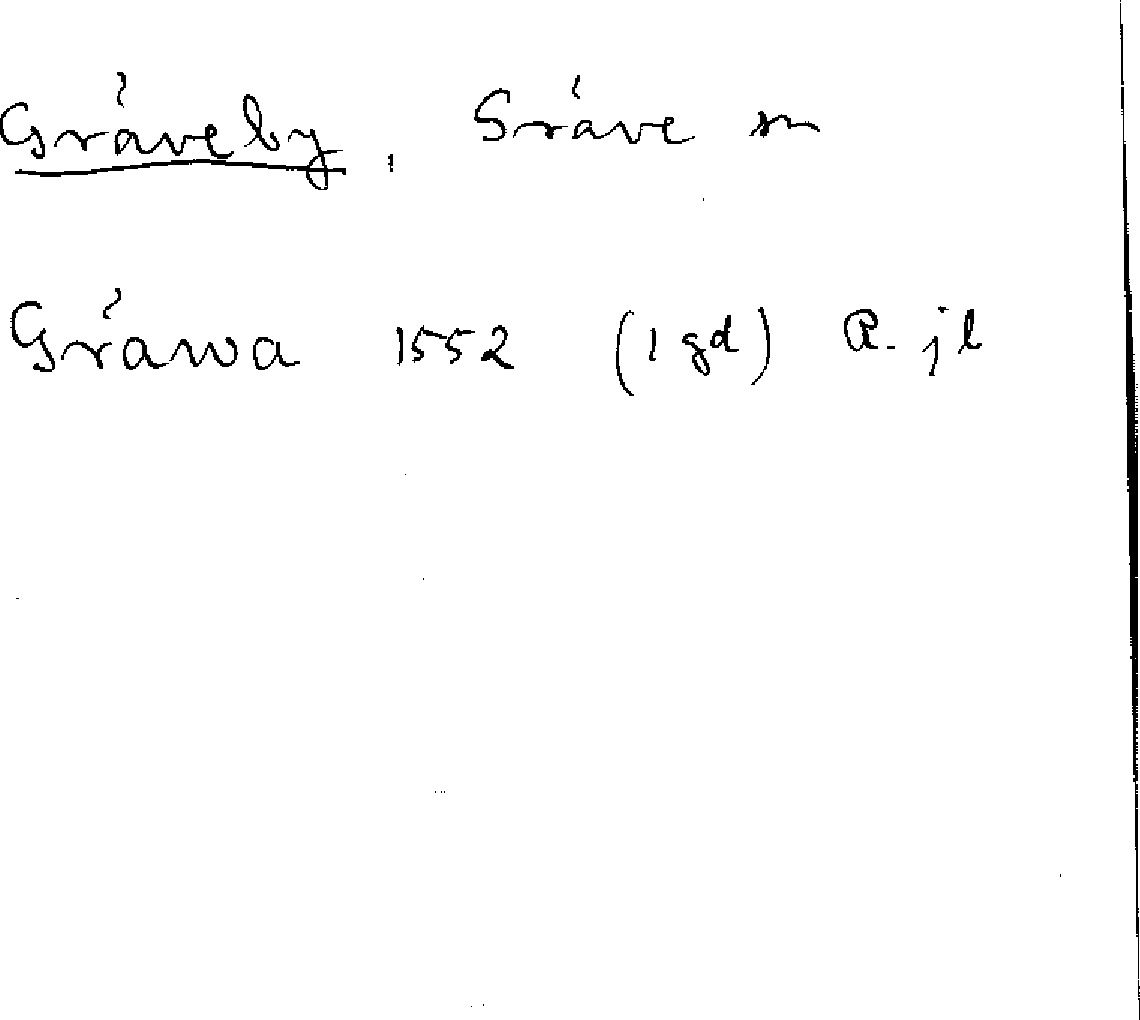 Gråveby, Gråve sn
Gråwa 1552 (1 gd) R. jb